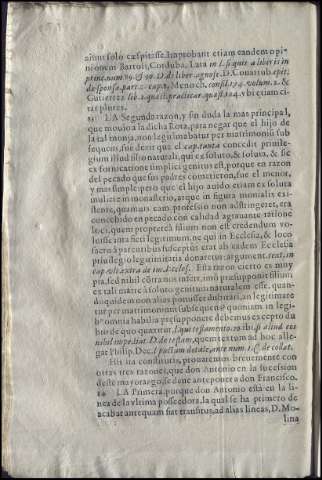 aiunt solo cæspitisse. Improbant etiam eandem opi-
nionem Bartoli, Corduba, Lara in l. si quis a liberis in
princ. num. 89. & 90. D. de liber. agnosc. D. Couarrub. epit.
de sponsa. part. 2. cap. 8. Menoch. consil. 174. volum. 2. &
Gutierrez lib. 2. quæst. practicar. quæst. 104. vbi etiam ci-
tat plures.
LA Segunda razon, y sin duda la mas principal,
que mouio a la dicha Rota, para negar que el hijo de
la tal monja, non legitimabatur per matrimonium sub
sequens, fue dezir que el cap. tanta concedit privile-
gium illud filio naturali, qui ex soluto, & soluta, & sic
ex fornicatione simplici genitus est, porque en razon
del pecado que sus padres cometieron, fue el menor,
y mas simple: pero que el hijo auido etiam ex soluta
muliere in monasterio, atque in figura monialis exi-
stente, quamuis cum professio non adstringeret, era
concebido en pecado con calidad agrauante ratione
loci, quem propterea filium non est credendum vo-
luisse intra fieri legitimum, ne qui in Ecclesia, & loco
sacro à parentibus susceptus erat ab eadem Ecclesia
priuilegio legitimitatis donaretur: argument. text. in
cap. vlt. extra de im. Eccles. Esta razon cierto es muy
pia, sed nihil côtra nos infert, imò præsupponit filium
ex tali matre à soluto genitum naturalem esse, quan-
doquidem non alias potuisset dubitari, an legitimare
tur per matrimonium subsequens? quoniam in legi-
bus omnia habilia præsupponere debemus excepto du
bio de quo quæritur, l. qui testamento. 20. ibi, si aliud eos
nihil impediat. D. de testam. quem textum ad hoc alle-
gat Philip. Dec. l. post dotalitiæ, num. 1. C. de collat.
His ita constitutis, prouaremos breuemente con
otras tres razones, que don Antonio en la sucession
deste mayorazgo se deue anteponer a don Francisco.
LA Primera, porque don Antonio está en la li-
nea de la vltima posseedora, la qual se ha primero de
acabar antequam fiat transitus, ad alias lineas, D. Mo-
lina